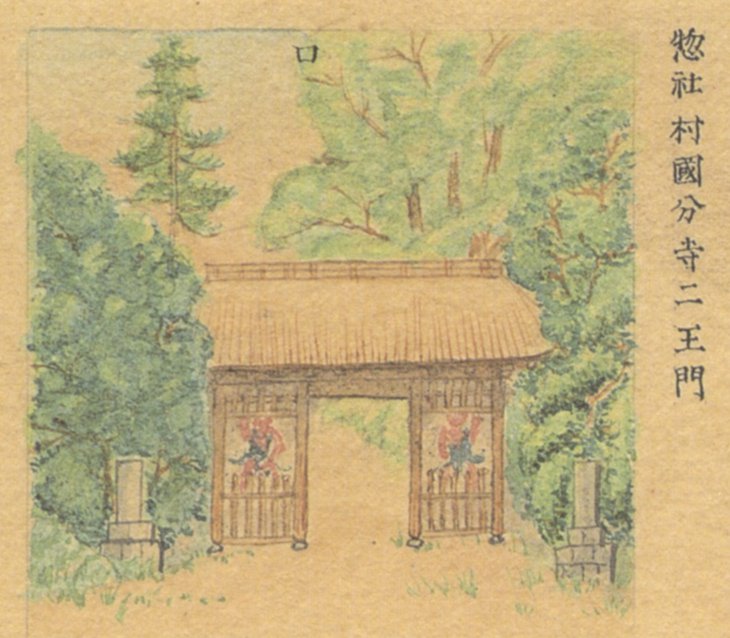 惣社村國分寺二王門
ロ